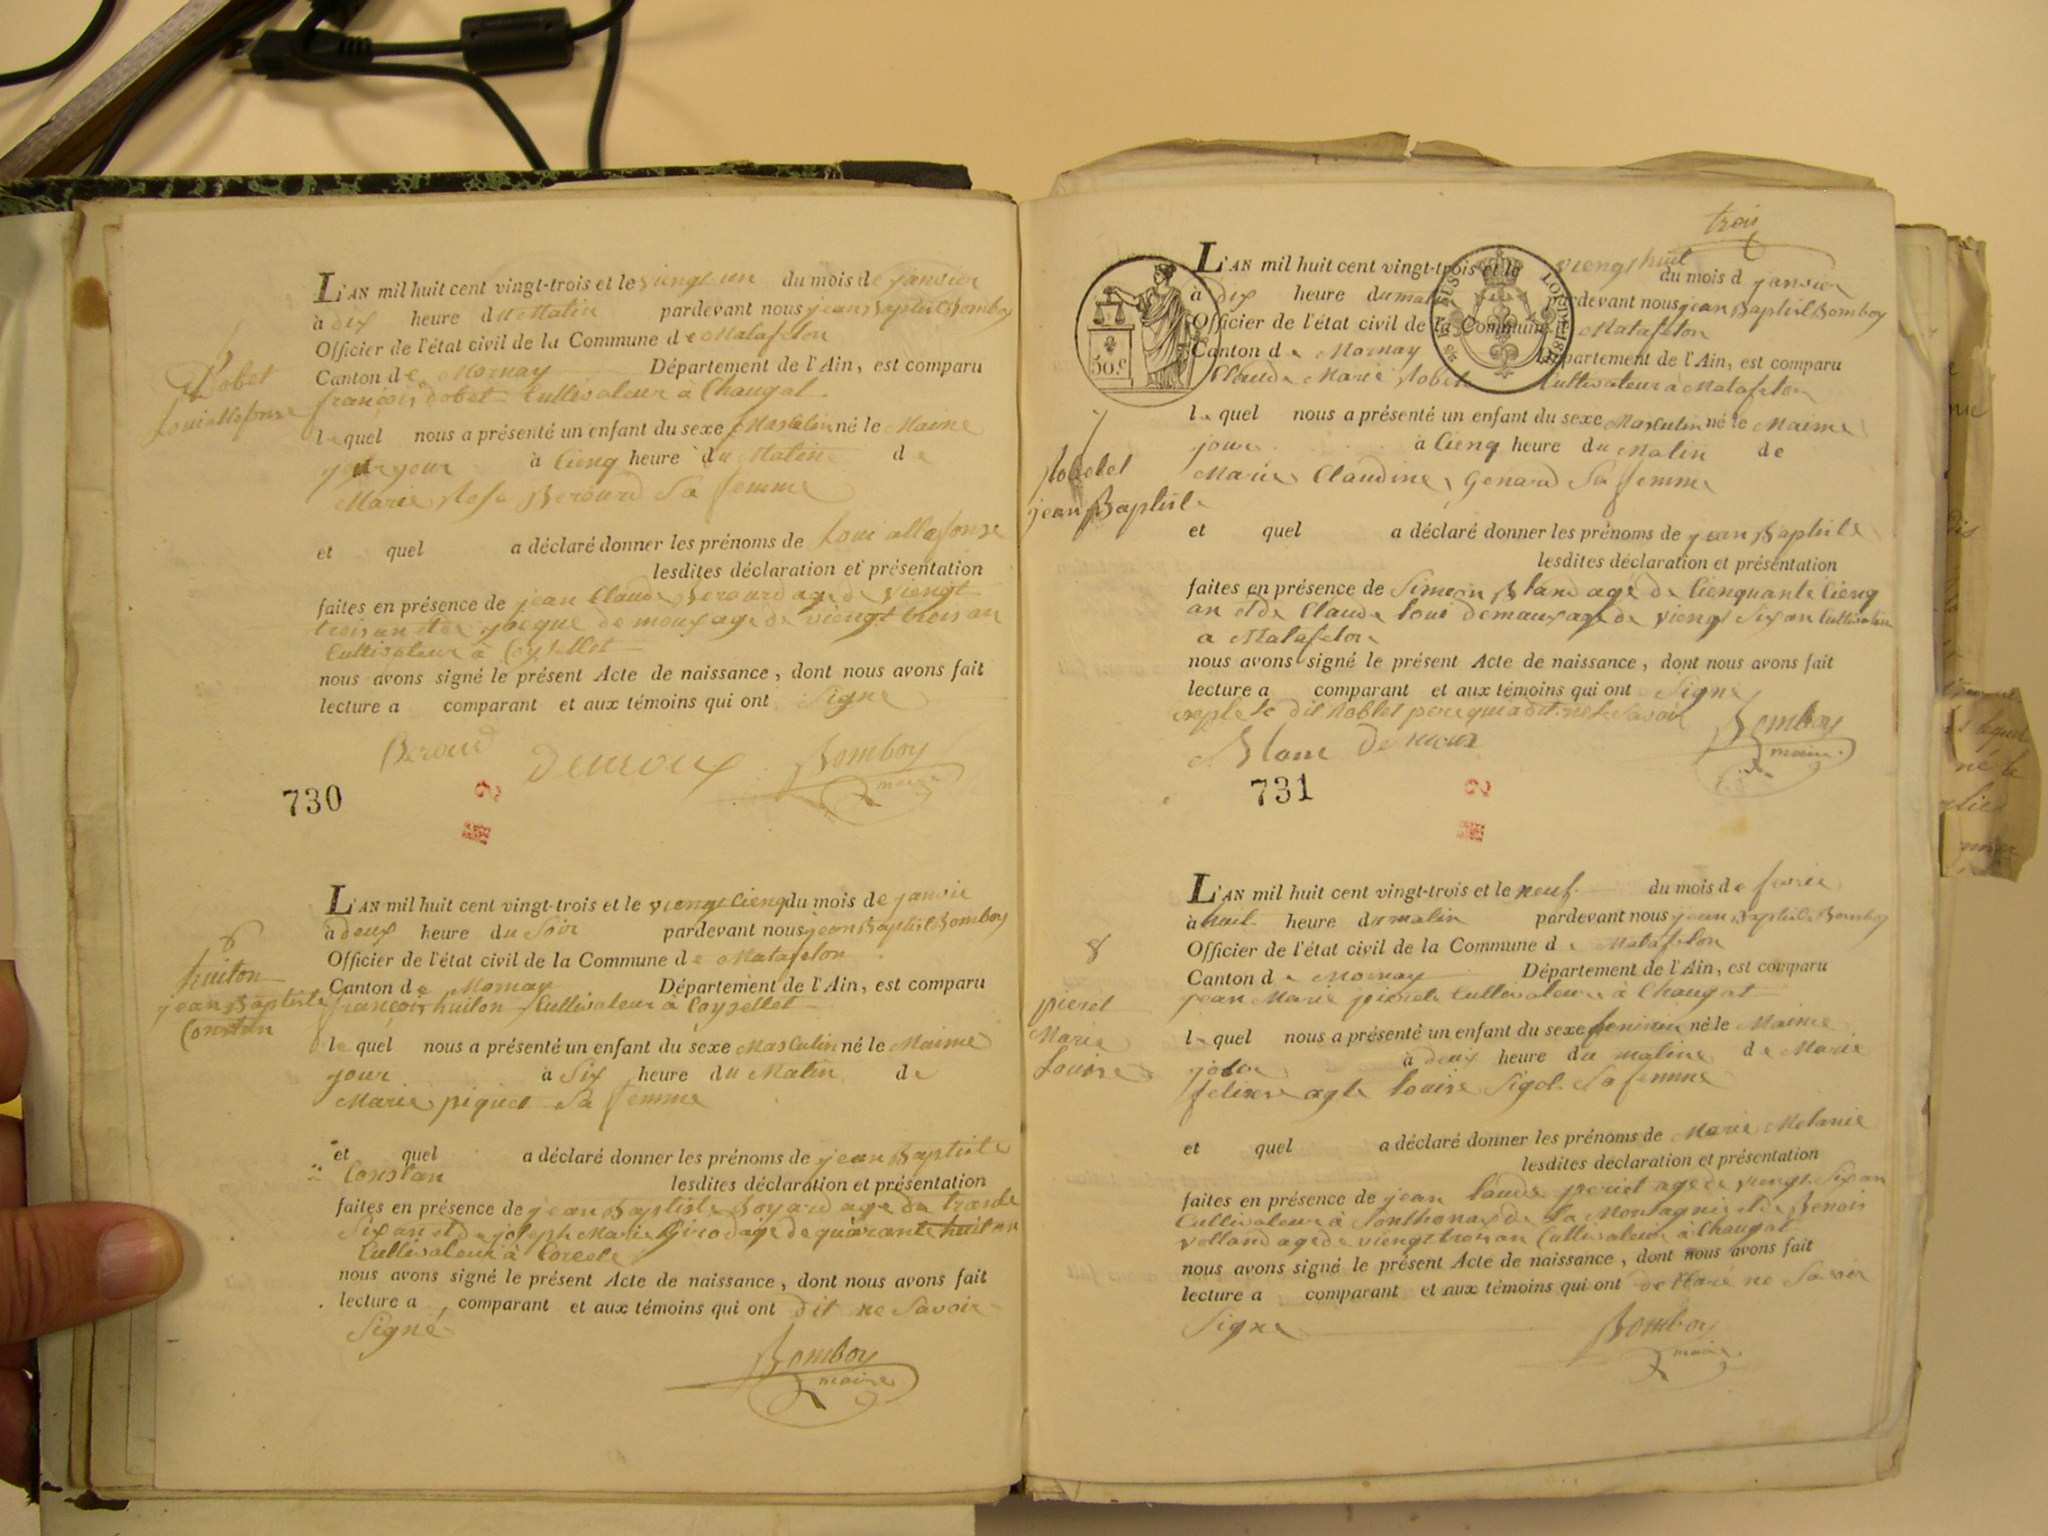 L'AN mil huit cent vingt-trois et le viengt un du mois de janvier
à dix heure du Matin pardevant nous jean Baptist Bomboy
Officier de l'état civil de la Commune de Matafelon
Canton de Mornay Département de l'Ain, est comparu
françois dobet Cultivateur à Chaugat
lequel nous a présenté un enfant du sexe Masculin né le Maime
jour à Cienq heure du Matin de
Marie Rose Beroud Sa femme
et quel a déclaré donner les prénoms de
lesdites déclaration et présentation
faites en présence de jean Claude Beroud age de viengt
trois an et de jacque demoux age de viengt trois an
Cultivateur à
nous avons signé le présent Acte de naissance, dont nous avons fait
lecture a comparant et aux témoins qui ont Signe
Beroud Demoux Bomboy
maire
730
2
6
huiton
jean Baptiste
Constan
L'AN mil huit cent vingt-trois et le viengt Cienq du mois de janvie
à deux heure du Soir pardevant nous jean Baptist Bomboy
Officier de l'état civil de la Commune de Matafelon
Canton de Mornay Département de l'Ain, est comparu
françois huiton Cultivateur à Coysellet
lequel nous a présenté un enfant du sexe Masculin né le Maime
jour à Six heure du Matin de
Marie piquet Sa femme
et quel a déclaré donner les prénoms de jean Baptiste
Constan lesdites déclaration et présentation
faites en présence de jean Baptiste Boyard age de trante
Six an et de joseph Marie Girod age de quarante huit an
Cultivateur à
nous avons signé le présent Acte de naissance, dont nous avons fait
lecture a comparant et aux témoins qui ont dit ne Savoir
Signé
Bomboy
maire
trois
L'AN mil huit cent vingt-trois et le viengt huit du mois d janvier
à dix heure du matin pardevant nous jean Baptist Bomboy
Officier de l'état civil de la Commune Matafelon
Canton de Mornay Département de l'Ain, est comparu
50.c
Claude Marie Cultivateur à Matafelon
7
jean Baptiste
lequel nous a présenté un enfant du sexe Masculin né le Maime
jour à Cienq heure du Matin de
Marie Claudine Genard Sa femme
et quel a déclaré donner les prénoms de jean Baptiste
lesdites déclaration et présentation
faites en présence de Simeon Blanc age de Cienquante Cienq
an et de Claude loui demaux age de viengt Six an Cultivateur
a Matafelon
nous avons signé le présent Acte de naissance, dont nous avons fait
lecture a comparant et aux témoins qui ont Signe
dit Roblet pere qui a dit ne Savoir Bomboy
Blanc Demoux maire
731
2
8
pieret
Marie
Louise
L'AN mil huit cent vingt-trois et le neuf du mois de fevrie
à huit heure du matin pardevant nous jean Baptiste Bomboy
Officier de l'état civil de la Commune de Matafelon
Canton de Mornay Département de l'Ain, est comparu
jean Marie Cultivateur à Chaugat
lequel nous a présenté un enfant du sexe feminin né le Maime
jour à deux heure du matin de Marie
louise Sigot Sa femme
et quel a déclaré donner les prénoms de Marie Melanie
lesdites déclaration et présentation
faites en présence de jean age de viengt Six an
Cultivateur à Sonthonax de la Montagnie et de Benois
Volland age de viengt trois an Cultivateur à Chaugat
nous avons signé le présent Acte de naissance, dont nous avons fait
lecture a comparant et aux témoins qui ont ne Savoir
Signe
Bomboy
maire